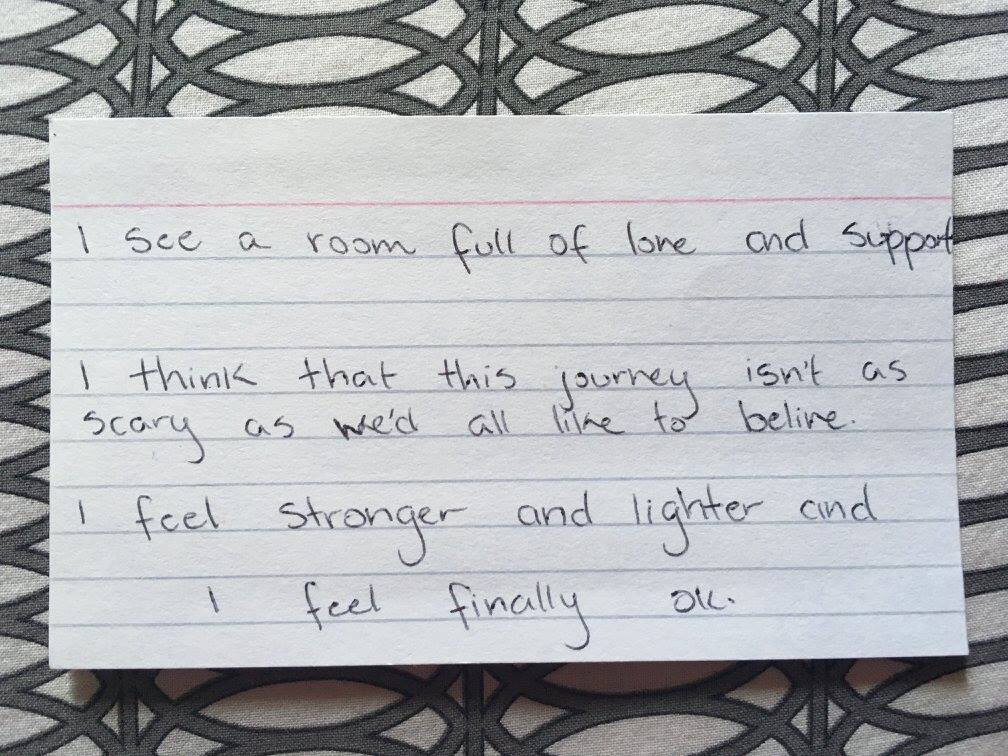 I see a room full of love and support
I think that this journey isn't as
scary as we'd all like to belive.
I feel stronger and lighter and
I feel finally ok.